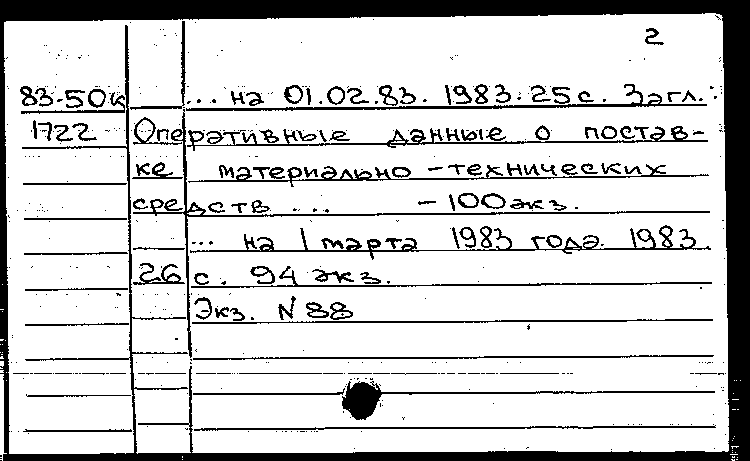 2
83-50к ... на 01.02.83. 1983. 25 с. Загл.:
1722 Оперативные данные о постав-
ке материально-технических
средств ... - 100 экз.
... на 1 марта 1983 года. 1983.
26 с. 94 экз.
Экз. N 88